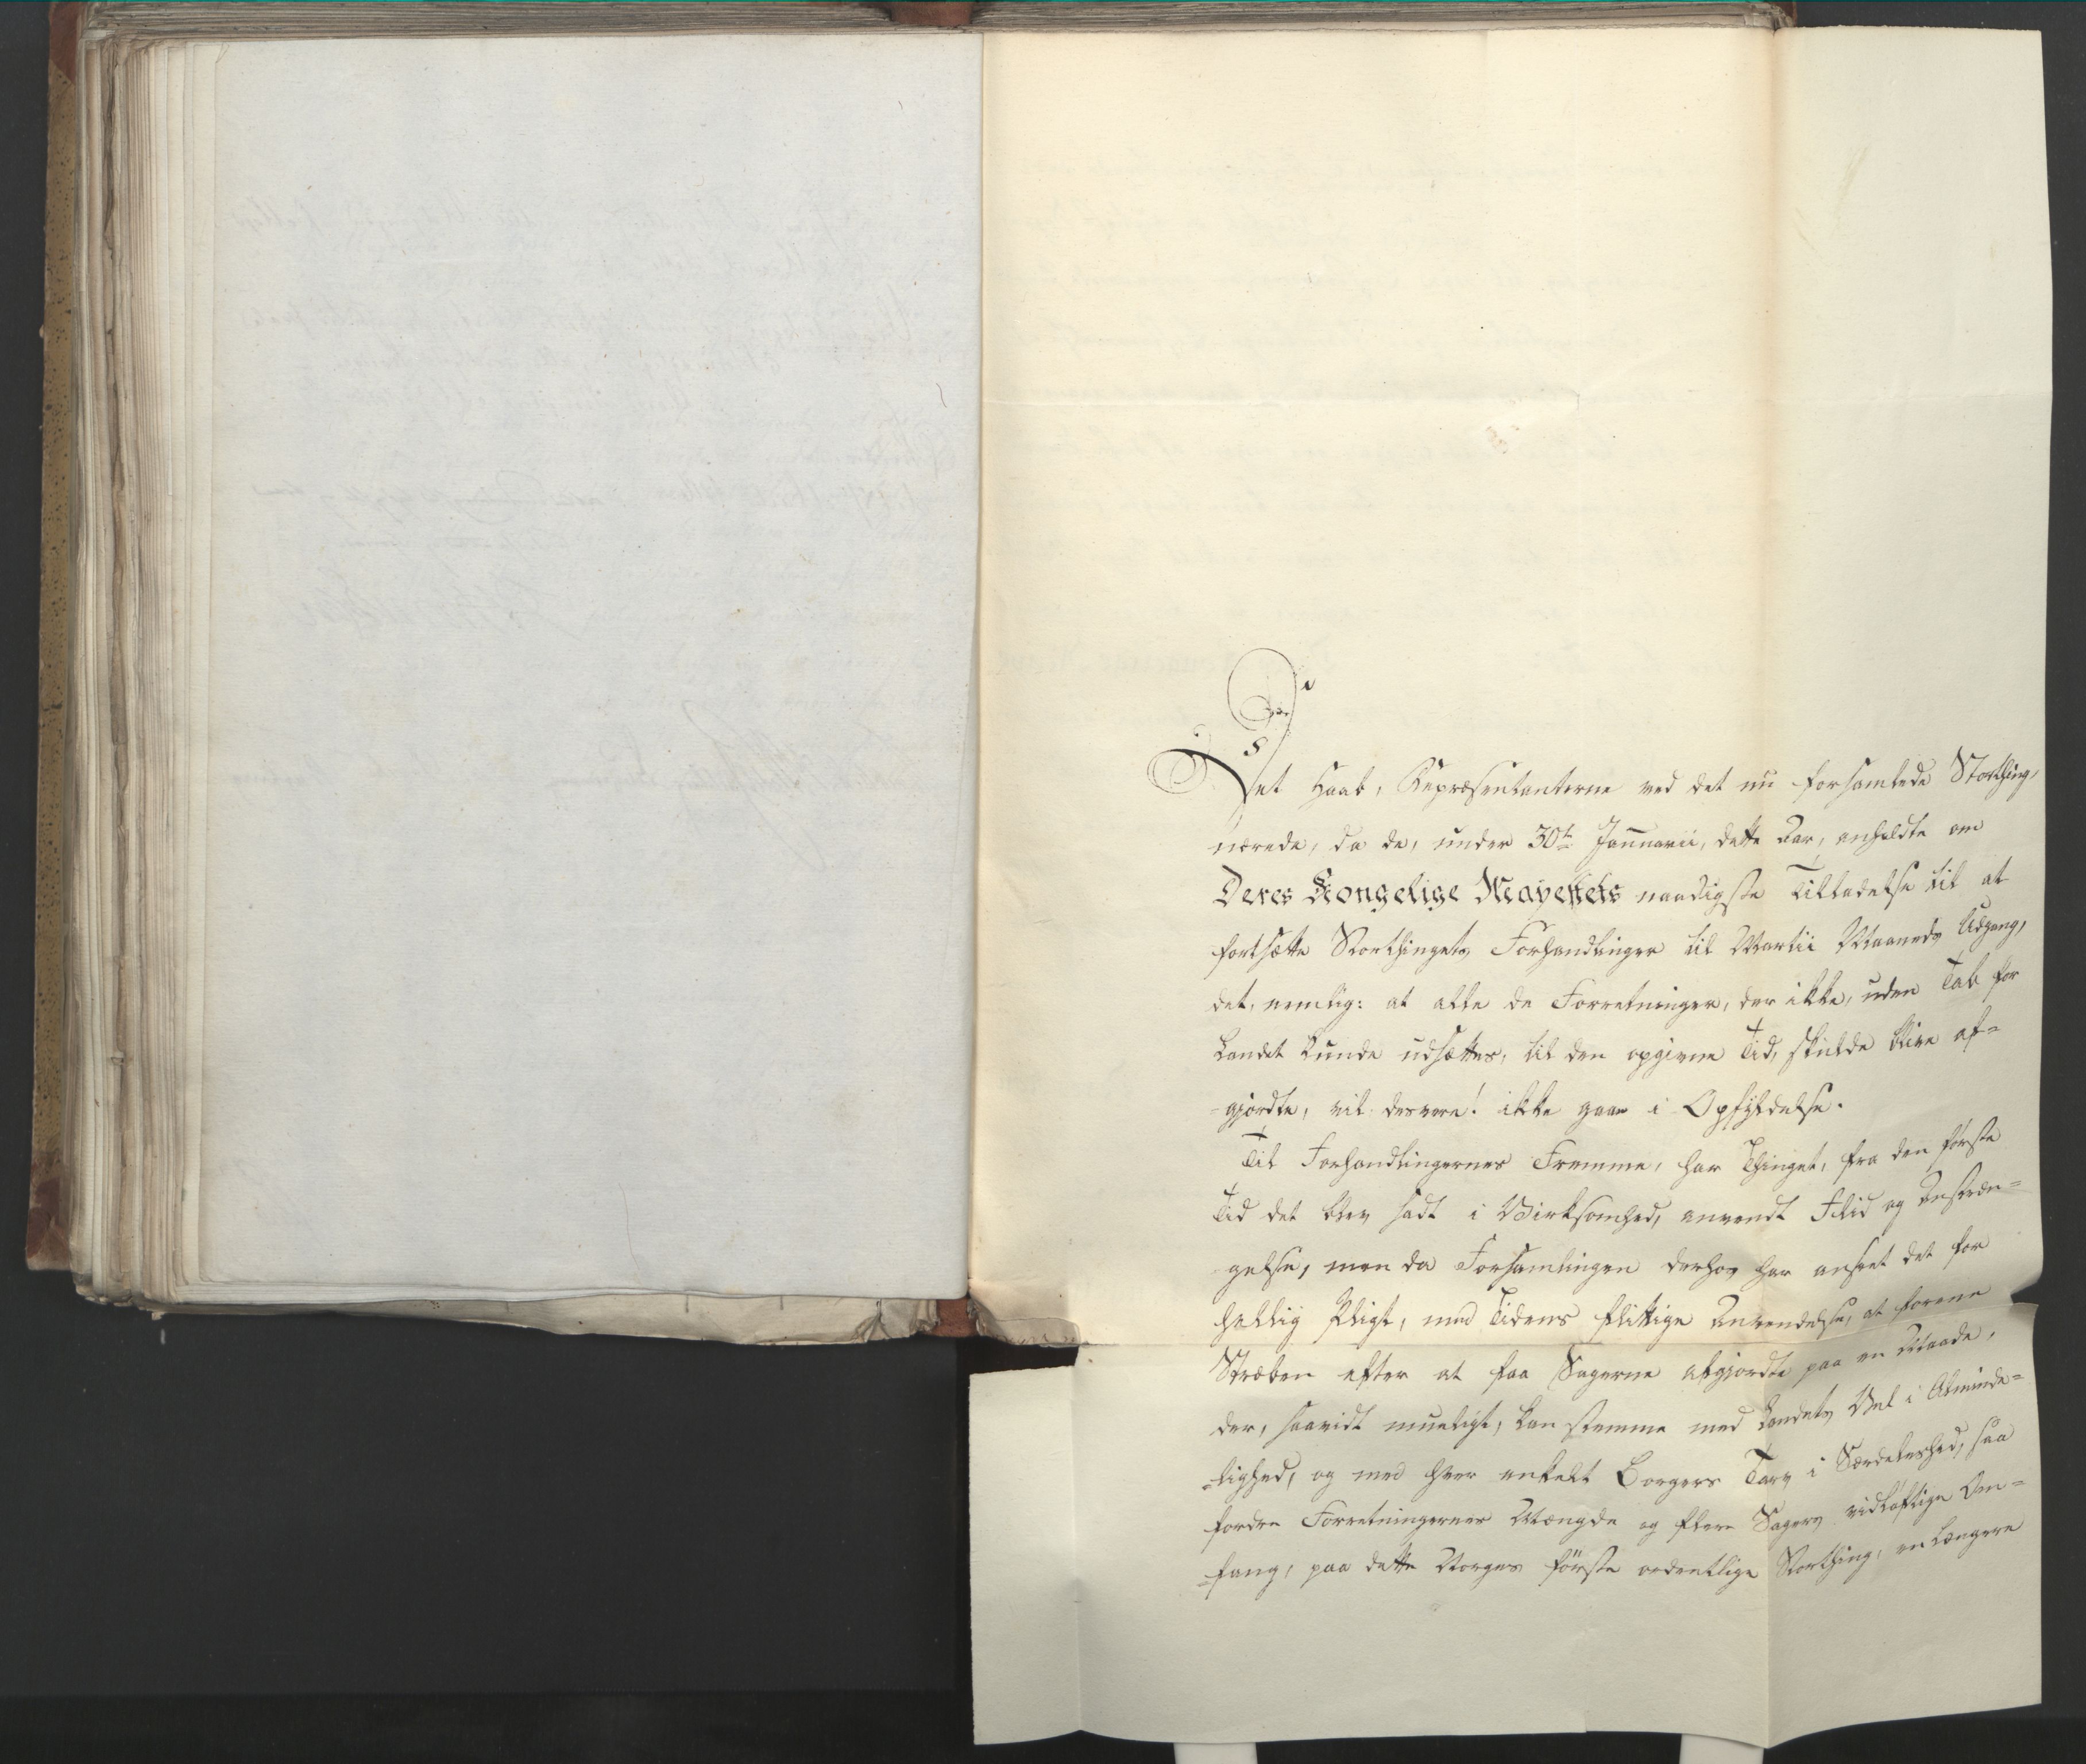 Det Haab, Repræsentanterne ved det nu forsamlede Storthing,
nærede, da de, under 30te Januarii, dette Aar, anholdte om
Deres Kongelige Mayestets naadigste Tilladelse til at
fortsætte Storthingets Forhandlinger til Martii Maaneds Udgang,
det, nemlig: at alle de Forretninger, der ikke, uden Tab for
Landet kunde udsættes, til den opgivne Tid, skulde blive af=
=gjordte, vil desvere! ikke gaae i Opfyldelse.
Til Forhandlingernes Fremme, har Thinget, fra den første
Tid det blev sadt i Virksomhed, anvendt Flid og Anstræn=
gelse, men da Forsamlingen derhos har anseet det for
hellig Pligt, med Tidens flittige Anvendelse, at forene
Stræben efter at faa Sagerne afgjordte paa en Maade,
der, saavidt mueligt, kan stemme med Landets Vel i Alminde=
=lighed, og med hver enkelt Borgers Tarv i Særdeleshed, saa
fordre Forretningernes Mængde og flere Sagers vidløftige Om=
=fang, paa dette Norges første ordentlige Storthing, en længere